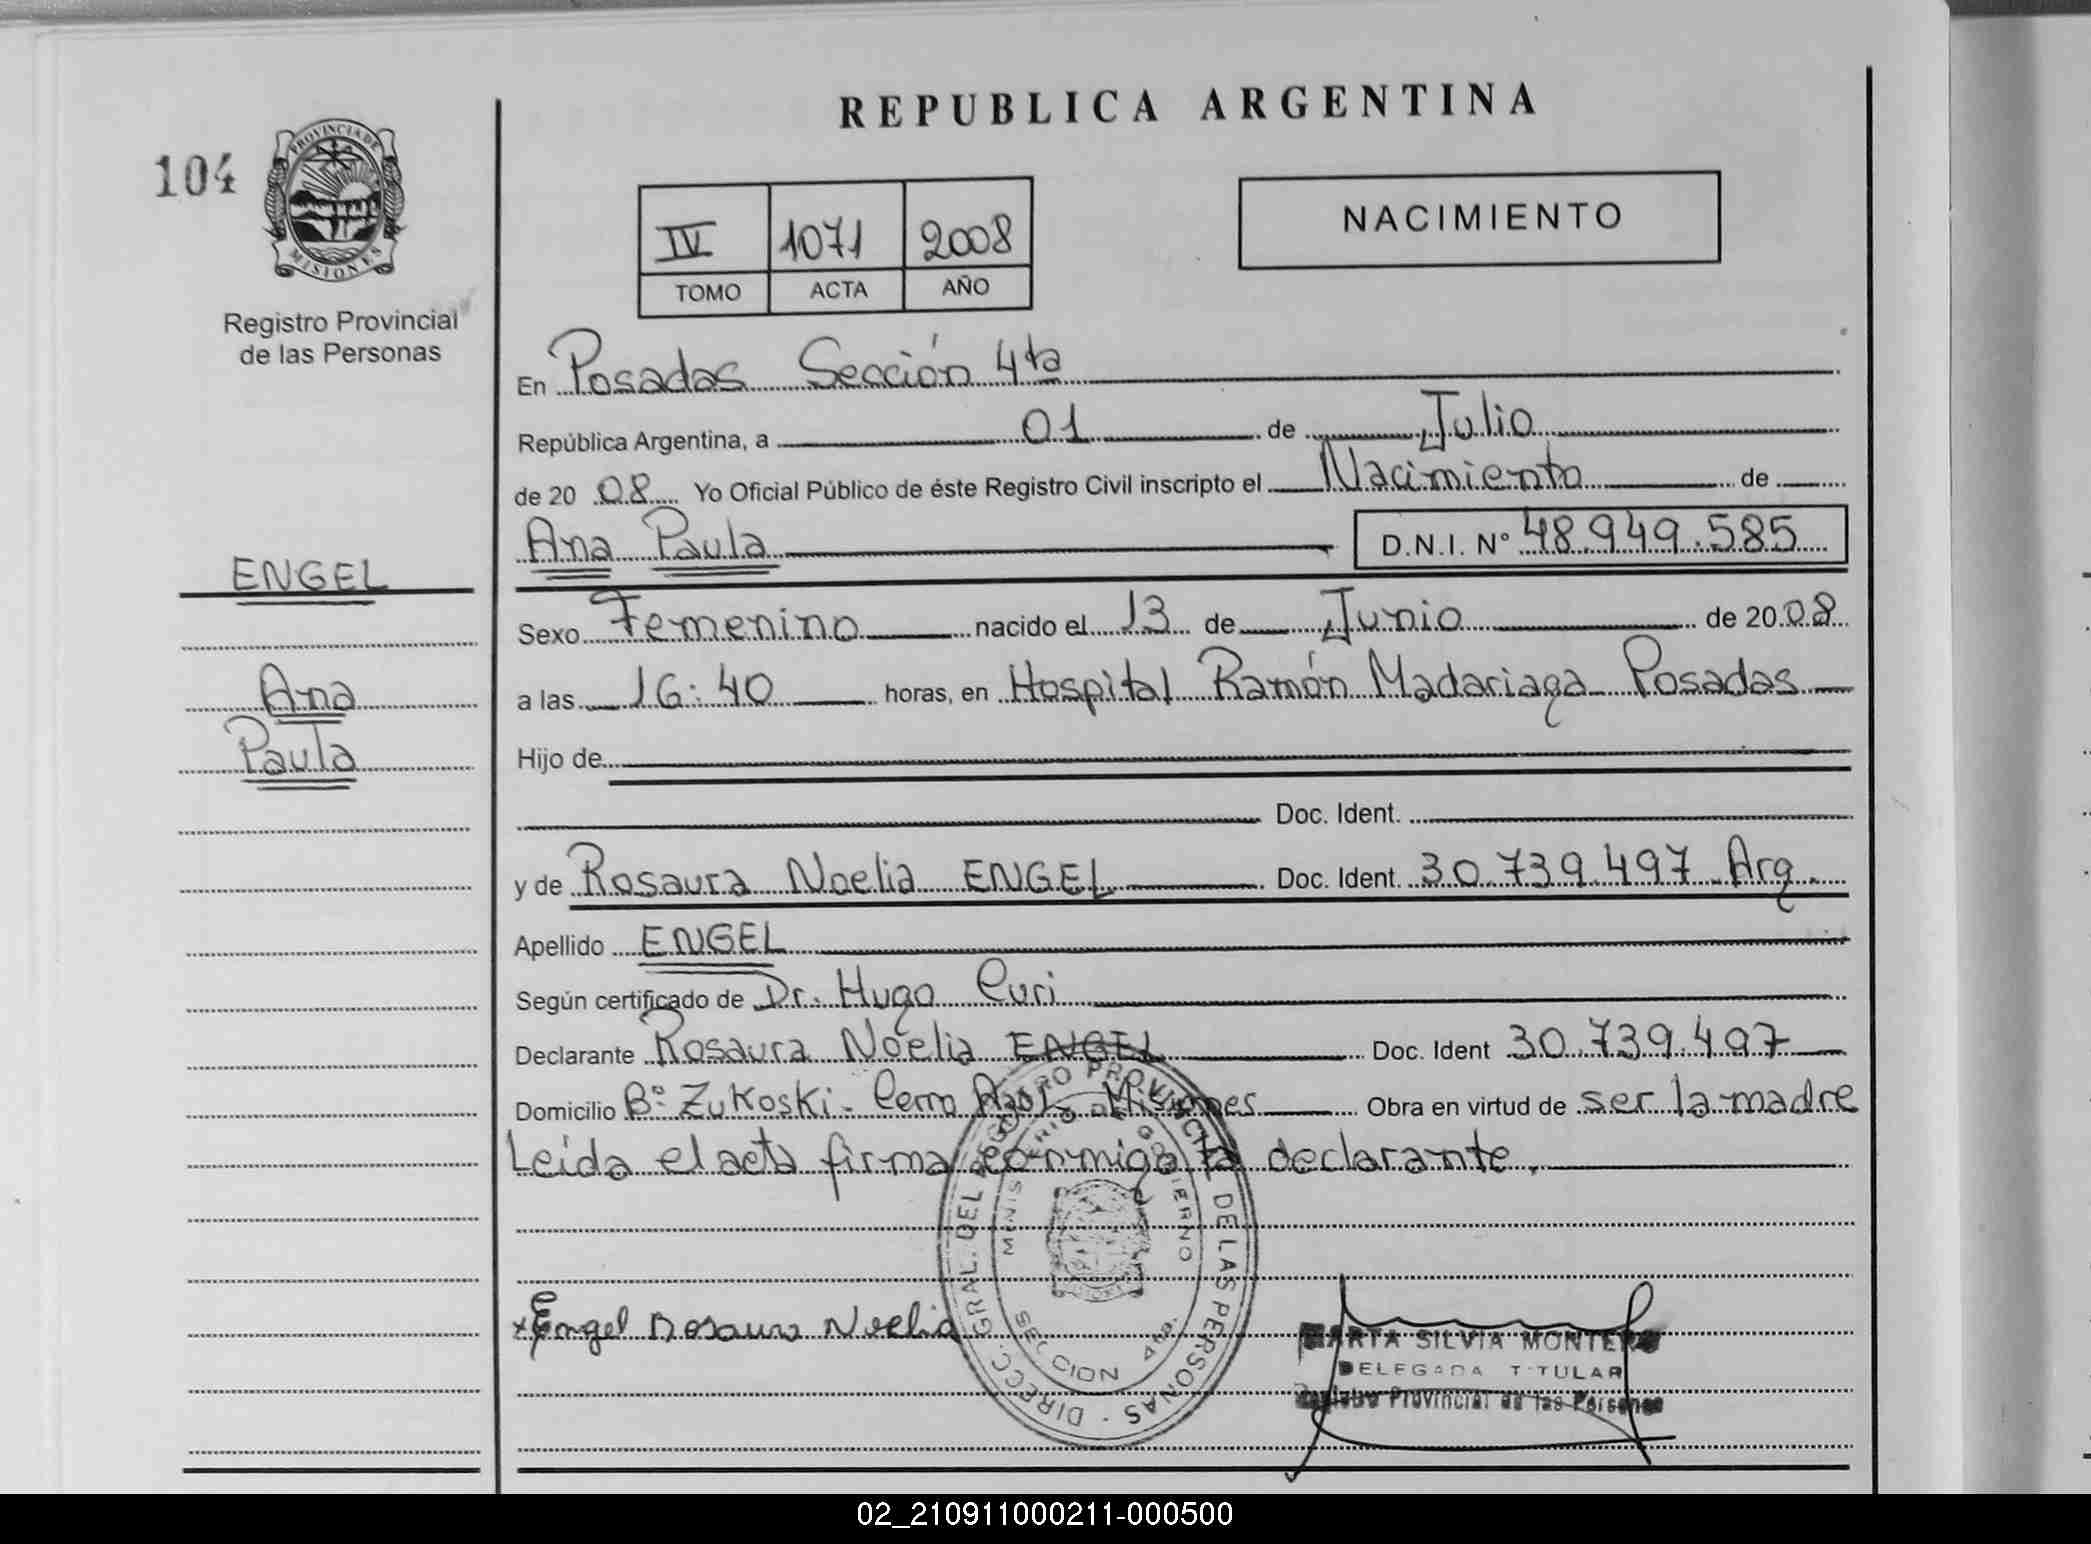 REPUBLICA ARGENTINA
104
PROVINCIA DE
MISIONES
Registro Provincial
de las Personas
IV 1071 2008
TOMO ACTA AÑO
NACIMIENTO
En Posadas Sección 4ta
República Argentina, a 01 de Julio
de 20 08 Yo Oficial Público de éste Registro Civil inscripto el Nacimiento de
Ana Paula D.N.I. N° 48.949.585
ENGEL
Ana
Paula
Sexo Femenino nacido el 13 de Junio de 20 08
a las 16:40 horas, en Hospital Ramón Madariaga Posadas
Hijo de
Doc. Ident.
y de Rosaura Noelia ENGEL Doc. Ident. 30.739.497 Arg.
Apellido ENGEL
Según certificado de Dr. Hugo Curi
Declarante Rosaura Noelia ENGEL Doc. Ident 30.739.497
Domicilio B° Zukoski - Cerro Azul - Misiones Obra en virtud de ser la madre
Leída el acta firma conmigo la declarante.
DIRECC. GRAL. DEL REGISTRO PROVINCIAL DE LAS PERSONAS
MINISTERIO DE GOBIERNO
SECCION 4ta.
x Engel Rosaura Noelia
MARTA SILVIA MONTERO
DELEGADA TITULAR
Registro Provincial de las Personas
02_210911000211-000500